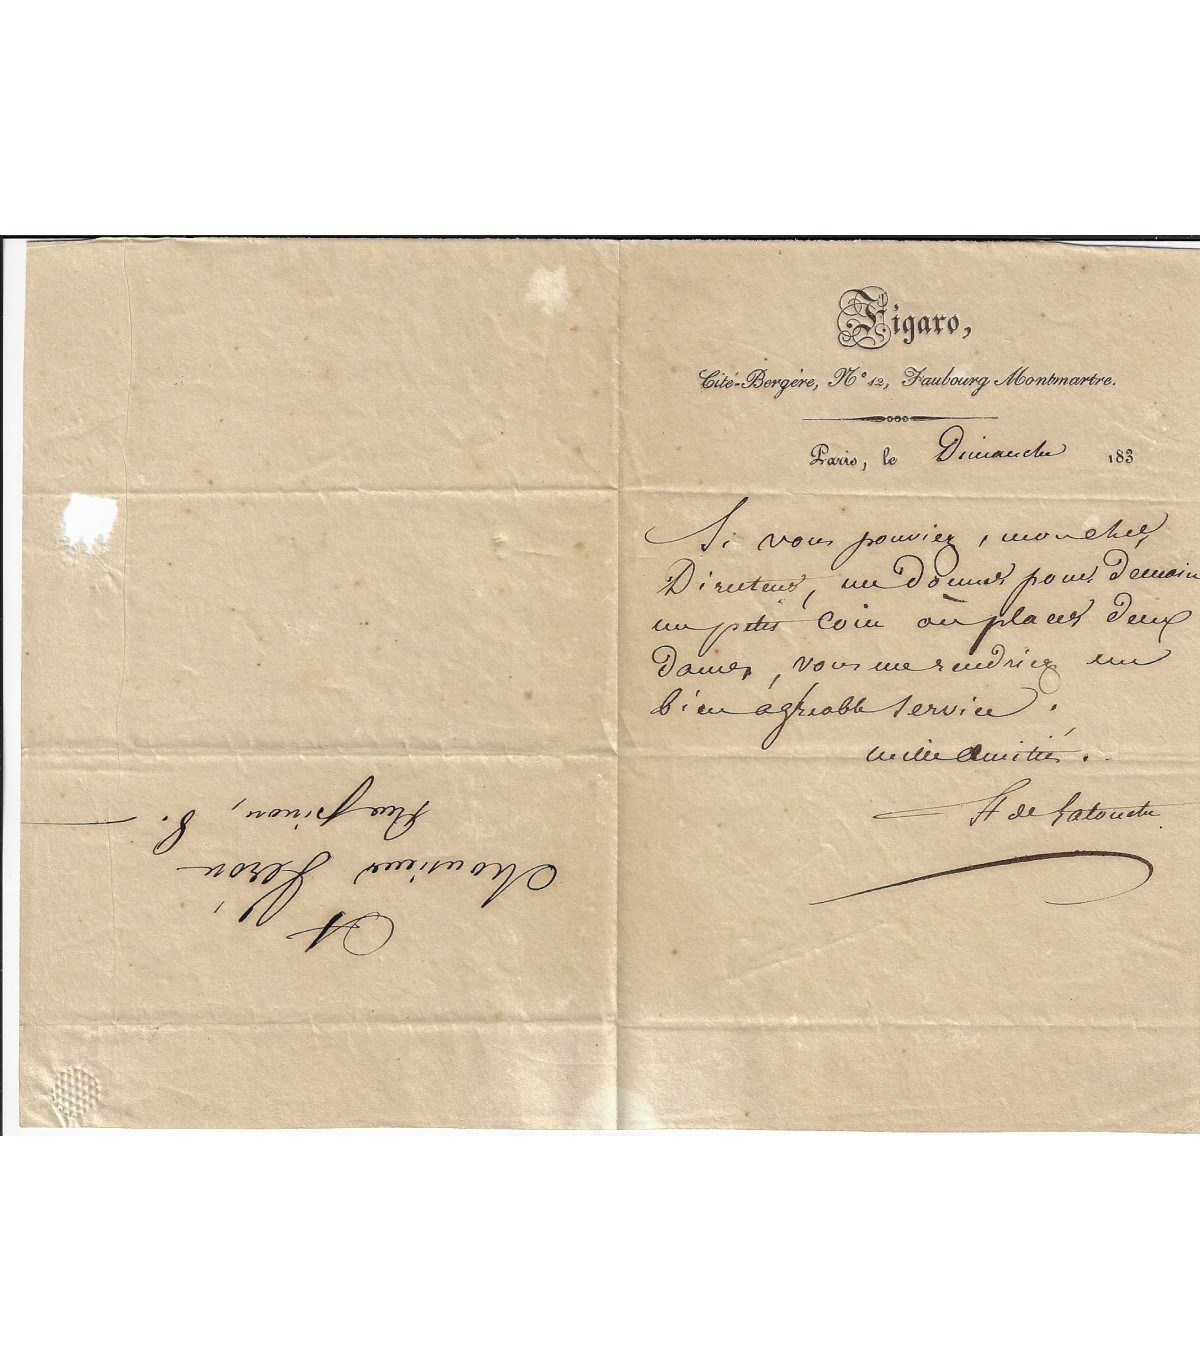 Figaro,
Cité-Bergère, N° 12, Faubourg Montmartre.
Paris, le Dimanche 183
Si vous pouviez, mon cher
Directeur, me donner pour demain
un petit coin où placer deux
dames, vous me rendriez un
bien agréable service.
mille amitiés.
H de Latouche
A
Monsieur Véron
Rue pinon, 8.